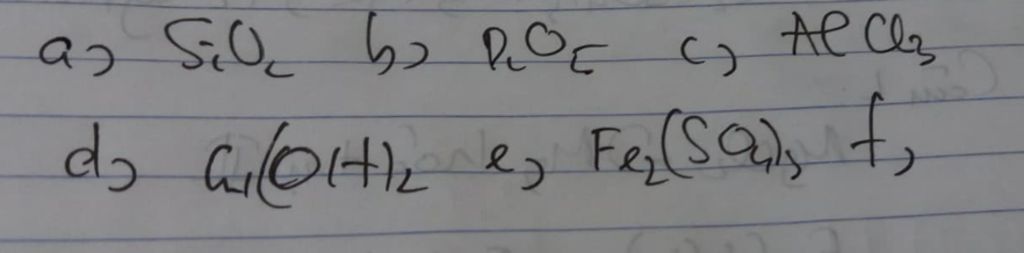 a, SiO2 b, P2O5 c, AlCl3
d, Cu(OH)2 e, Fe2(SO4)3 f,